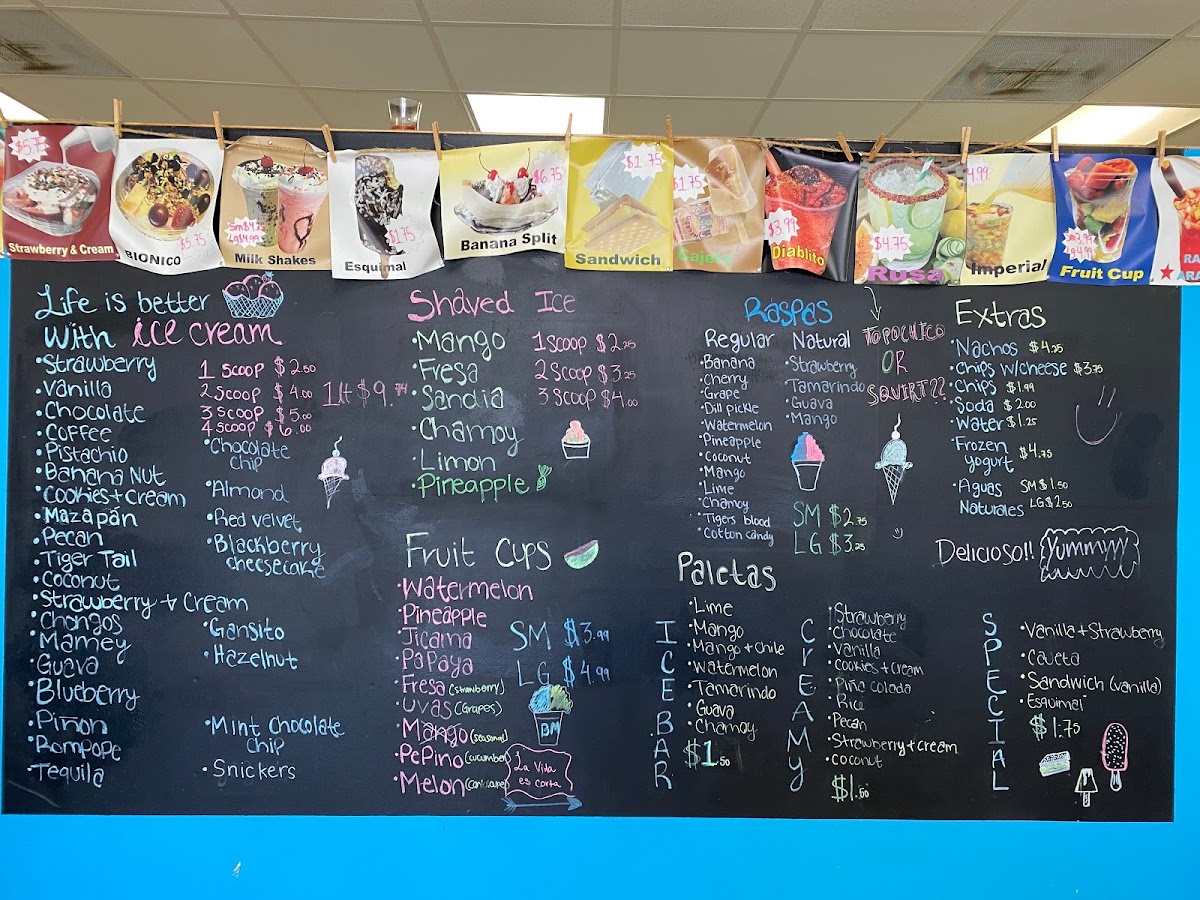 $5.75
Strawberry & Cream
BIONICO
$5.75
Milk Shakes
Lg $4.99
Esquimal
$1.75
Banana Split
$6.75
Sandwich
$1.75
$1.75
Cajeta
$3.99
Diablito
$4.75
Rusa
4.99
Imperial
Sm 3.99
Lg 4.99
Fruit Cup
Life is better
with ice cream
•Strawberry
•Vanilla
•Chocolate
•Coffee
•Pistachio
•Banana Nut
•Cookies+Cream
•Mazapán
•Pecan
•Tiger Tail
•Coconut
•Strawberry + Cream
•Chongos
•Mamey
•Guava
•Blueberry
•Piñon
•Rompope
•Tequila
1 scoop $2.50
2 scoop $4.00
3 scoop $5.00
4 scoop $6.00
1 Lt $9.
•Chocolate
chip
•Almond
•Red velvet
•Blackberry
cheesecake
•Gansito
•Hazelnut
•Mint Chocolate
Chip
•Snickers
Shaved Ice
•Mango
•Fresa
•Sandia
•Chamoy
•Limon
•Pineapple
1 scoop $2.25
2 scoop $3.25
3 scoop $4.00
Fruit Cups
•Watermelon
•Pineapple
•Jicama
•Papaya
•Fresa (strawberry)
•Uvas (Grapes)
•Mango (seasonal)
•PePino (cucumber)
•Melon
SM $3.99
LG $4.99
BM
La Vida
es corta
Raspas
Regular
•Banana
•Cherry
•Grape
•Dill pickle
•Watermelon
•Pineapple
•Coconut
•Mango
•Lime
•Chamoy
•Tigers blood
•Cotton candy
Natural
•Strawberry
•Tamarindo
•Guava
•Mango
TOPOCHICO
OR
SQUIRT??
SM $2.75
LG $3.25
Extras
•Nachos $4.25
•Chips w/cheese $3.75
•Chips $1.99
•Soda $2.00
•Water $1.25
•Frozen
yogurt $4.75
•Aguas SM $1.50
Naturales LG $2.50
Delicioso!!
Yummyy
Paletas
ICE BAR
•Lime
•Mango
•Mango + chile
•Watermelon
•Tamarindo
•Guava
•Chamoy
$1.50
CREAMY
•Strawberry
•Chocolate
•Vanilla
•Cookies + Cream
•Piña colada
•Rice
•Pecan
•Strawberry + cream
•coconut
$1.50
SPECIAL
•Vanilla + Strawberry
•Cajeta
•Sandwich (vanilla)
•Esquimal
$1.75